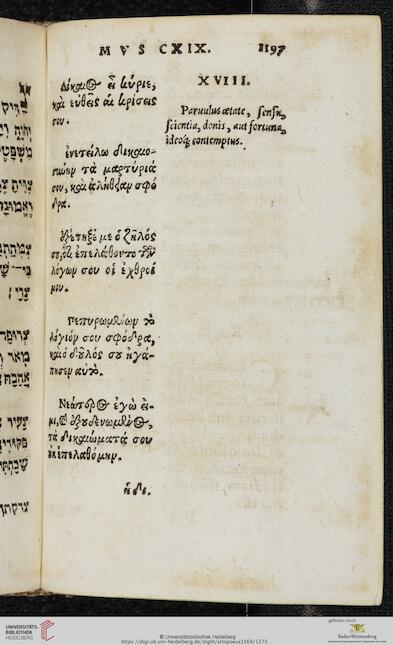 MVS CXIX. 1197
Δίκαιος εἶ κύριε,
καὶ εὐθεῖς αἱ κρίσεις
σου.
ἐνετείλω δικαιο-
σύνην τὰ μαρτύριά
σου, καὶ ἀλήθειαν σφό
δρα.
ἐξέτηξέ με ὁ ζῆλός
σου, ὅτι ἐπελάθοντο τῶν
λόγων σου οἱ ἐχθροί
μου.
Πεπυρωμένον τὸ
λόγιόν σου σφόδρα,
καὶ ὁ δοῦλός σου ἠγά-
πησεν αὐτό.
Νεώτερος ἐγώ εἰ-
μι, καὶ ἐξουδενωμένος,
τὰ δικαιώματά σου
οὐκ ἐπελαθόμην.
ἡ δι.
XVIII.
Paruulus ætate, sensu,
scientia, donis, aut fortuna,
ideoq; contemptus.
UNIVERSITÄTS-
BIBLIOTHEK
HEIDELBERG
© Universitätsbibliothek Heidelberg
https://digi.ub.uni-heidelberg.de/diglit/artopoeus1569/1273
gefördert durch
Baden-Württemberg